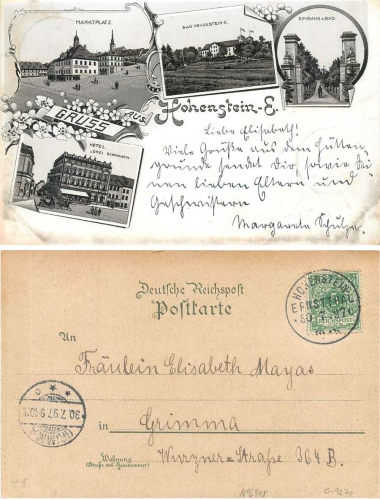 MARKTPLATZ.
BAD HOHENSTEIN-E.
EINGANG z. BAD.
GRUSS AUS
Hohenstein-E.
HÔTEL
z. DREI SCHWANEN
Liebe Elisabeth!
Viele Grüße aus dem Hütten-
grunde sendet Dir, sowie Dei-
nen lieben Eltern und
Geschwistern
Margarete Schulze.
Deutsche Reichspost
Postkarte
HOHENSTEIN
ERNSTTHAL
An
Fräulein Elisabeth Mayas
GRIMMA
30.7.97
in Grimma
Wohnung
(Straße und Hausnummer)
Wurzner-Straße 364 B.